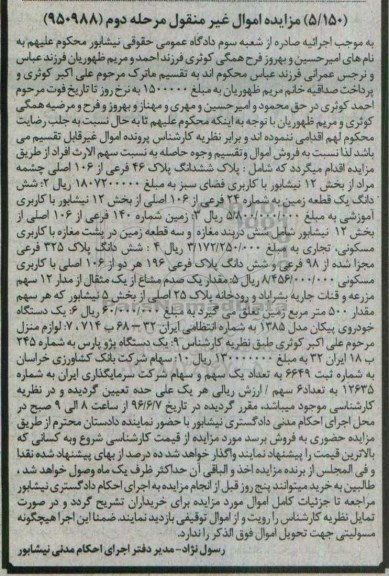 (۵/۱۵۰) مزایده اموال غیر منقول مرحله دوم (۹۵۰۹۸۸)
به موجب اجرائیه صادره از شعبه سوم دادگاه عمومی حقوقی نیشابور محکوم علیهم به
نام های امیرحسین و بهروز فرح همگی کوثری فرزند احمد و مریم ظهوریان فرزند عباس
و نرجس عمرانی فرزند عباس محکوم اند به تقسیم ماترک مرحوم علی اکبر کوثری و
پرداخت صداقیه خانم مریم ظهوریان به مبلغ ۱۵۰۰۰۰۰ به نرخ روز تا تاریخ فوت مرحوم
احمد کوثری در حق محمود و امیرحسین و مهری و مهناز و بهروز و فرح و مرضیه همگی
کوثری و مریم ظهوریان با توجه به اینکه محکوم علیهم تا به حال نسبت به جلب رضایت
محکوم لهم اقدامی ننموده اند و برابر نظریه کارشناس پرونده اموال غیرقابل تقسیم می
باشد لذا نسبت به فروش اموال و تقسیم وجوه حاصله به نسبت سهم الارث افراد از طریق
مزایده اقدام میگردد که شامل : پلاک ششدانگ پلاک ۴۶ فرعی از ۱۰۶ اصلی چشمه
مراد از بخش ۱۲ نیشابور با کاربری فضای سبز به مبلغ ۱۸۰۷۲۰۰۰۰۰ ریال ۲: شش
دانگ یک قطعه زمین به شماره ۲۴ فرعی از ۱۰۶ اصلی از بخش ۱۲ نیشابور با کاربری
آموزشی به مبلغ ۵/۸۰۰/۰۰۰/۰۰۰ ریال ۳: زمین شماره ۱۴۰ فرعی از ۱۰۶ اصلی از
بخش ۱۲ نیشابور شامل شش دربند مغازه و سه قطعه زمین در پشت مغازه با کاربری
مسکونی، تجاری به مبلغ ۳/۱۷۲/۲۵۰/۰۰۰ ریال ۴ : شش دانگ پلاک ۳۲۵ فرعی
مجزا شده از ۹۸ فرعی و شش دانگ پلاک فرعی ۱۹۶ هر دو از ۱۰۶ اصلی با کاربری
مسکونی ۸/۴۵۶/۰۰۰/۰۰۰ ریال ۵: مقدار یک صدم مشاع از یک مثقال از مدار ۱۲ سهم
مزرعه و قنات جاریه بشرآباد و رودخانه پلاک ۲۵ اصلی از بخش ۵ نیشابور که هر سهم
مقدار ۵۰۰ متر مربع زمین تعلق می گیرد به مبلغ ۶۰/۰۰۰/۰۰۰ ریال ۶: یک دستگاه
خودروی پیکان مدل ۱۳۸۵ به شماره انتظامی ایران ۳۲ – ۶۸ ب ۷۱۴ ، ۷: لوازم منزل
مرحوم علی اکبر کوثری طبق نظریه کارشناس ۹: یک دستگاه پژو پارس به شماره ۲۴۵
ب ۱۸ ایران ۳۲ به مبلغ ۱۳۰۰۰۰۰۰۰ ریال ۱۰: سهام شرکت بانک کشاورزی خراسان
به شماره ثبت ۶۶۴۹ به تعداد یک سهم و سهام شرکت سرمایگذاری ایران به شماره
۱۲۶۳۵ به تعداد ۶ سهم / ارزش ریالی هر یک علی حده تعیین گردیده و در نظریه
کارشناسی موجود میباشد، مقرر گردیده در تاریخ ۹۶/۶/۷ از ساعت ۸ الی ۹ صبح در
محل اجرای احکام مدنی دادگستری نیشابور با حضور نماینده دادستان محترم از طریق
مزایده حضوری به فروش برسد مورد مزایده از قیمت کارشناسی شروع و به کسانی که
بالاترین قیمت را پیشنهاد نمایند واگذار خواهد شد ده درصد از بهای پیشنهاد شده نقدا
و فی المجلس از برنده مزایده اخذ و الباقی آن حداکثر ظرف یک ماه وصول خواهد شد ،
طالبین به خرید میتوانند پنج روز قبل از انجام مزایده به اجرای احکام دادگستری نیشابور
مراجعه تا جزئیات کامل اموال مورد مزایده برای خریداران تشریح گردد و در صورت
تمایل نظریه کارشناس را رویت و از اموال توقیفی بازدید نمایند، ضمنا این اجرا هیچگونه
مسولیتی جهت تحویل اموال فوق الذکر را ندارد.
رسول نژاد– مدیر دفتر اجرای احکام مدنی نیشابور